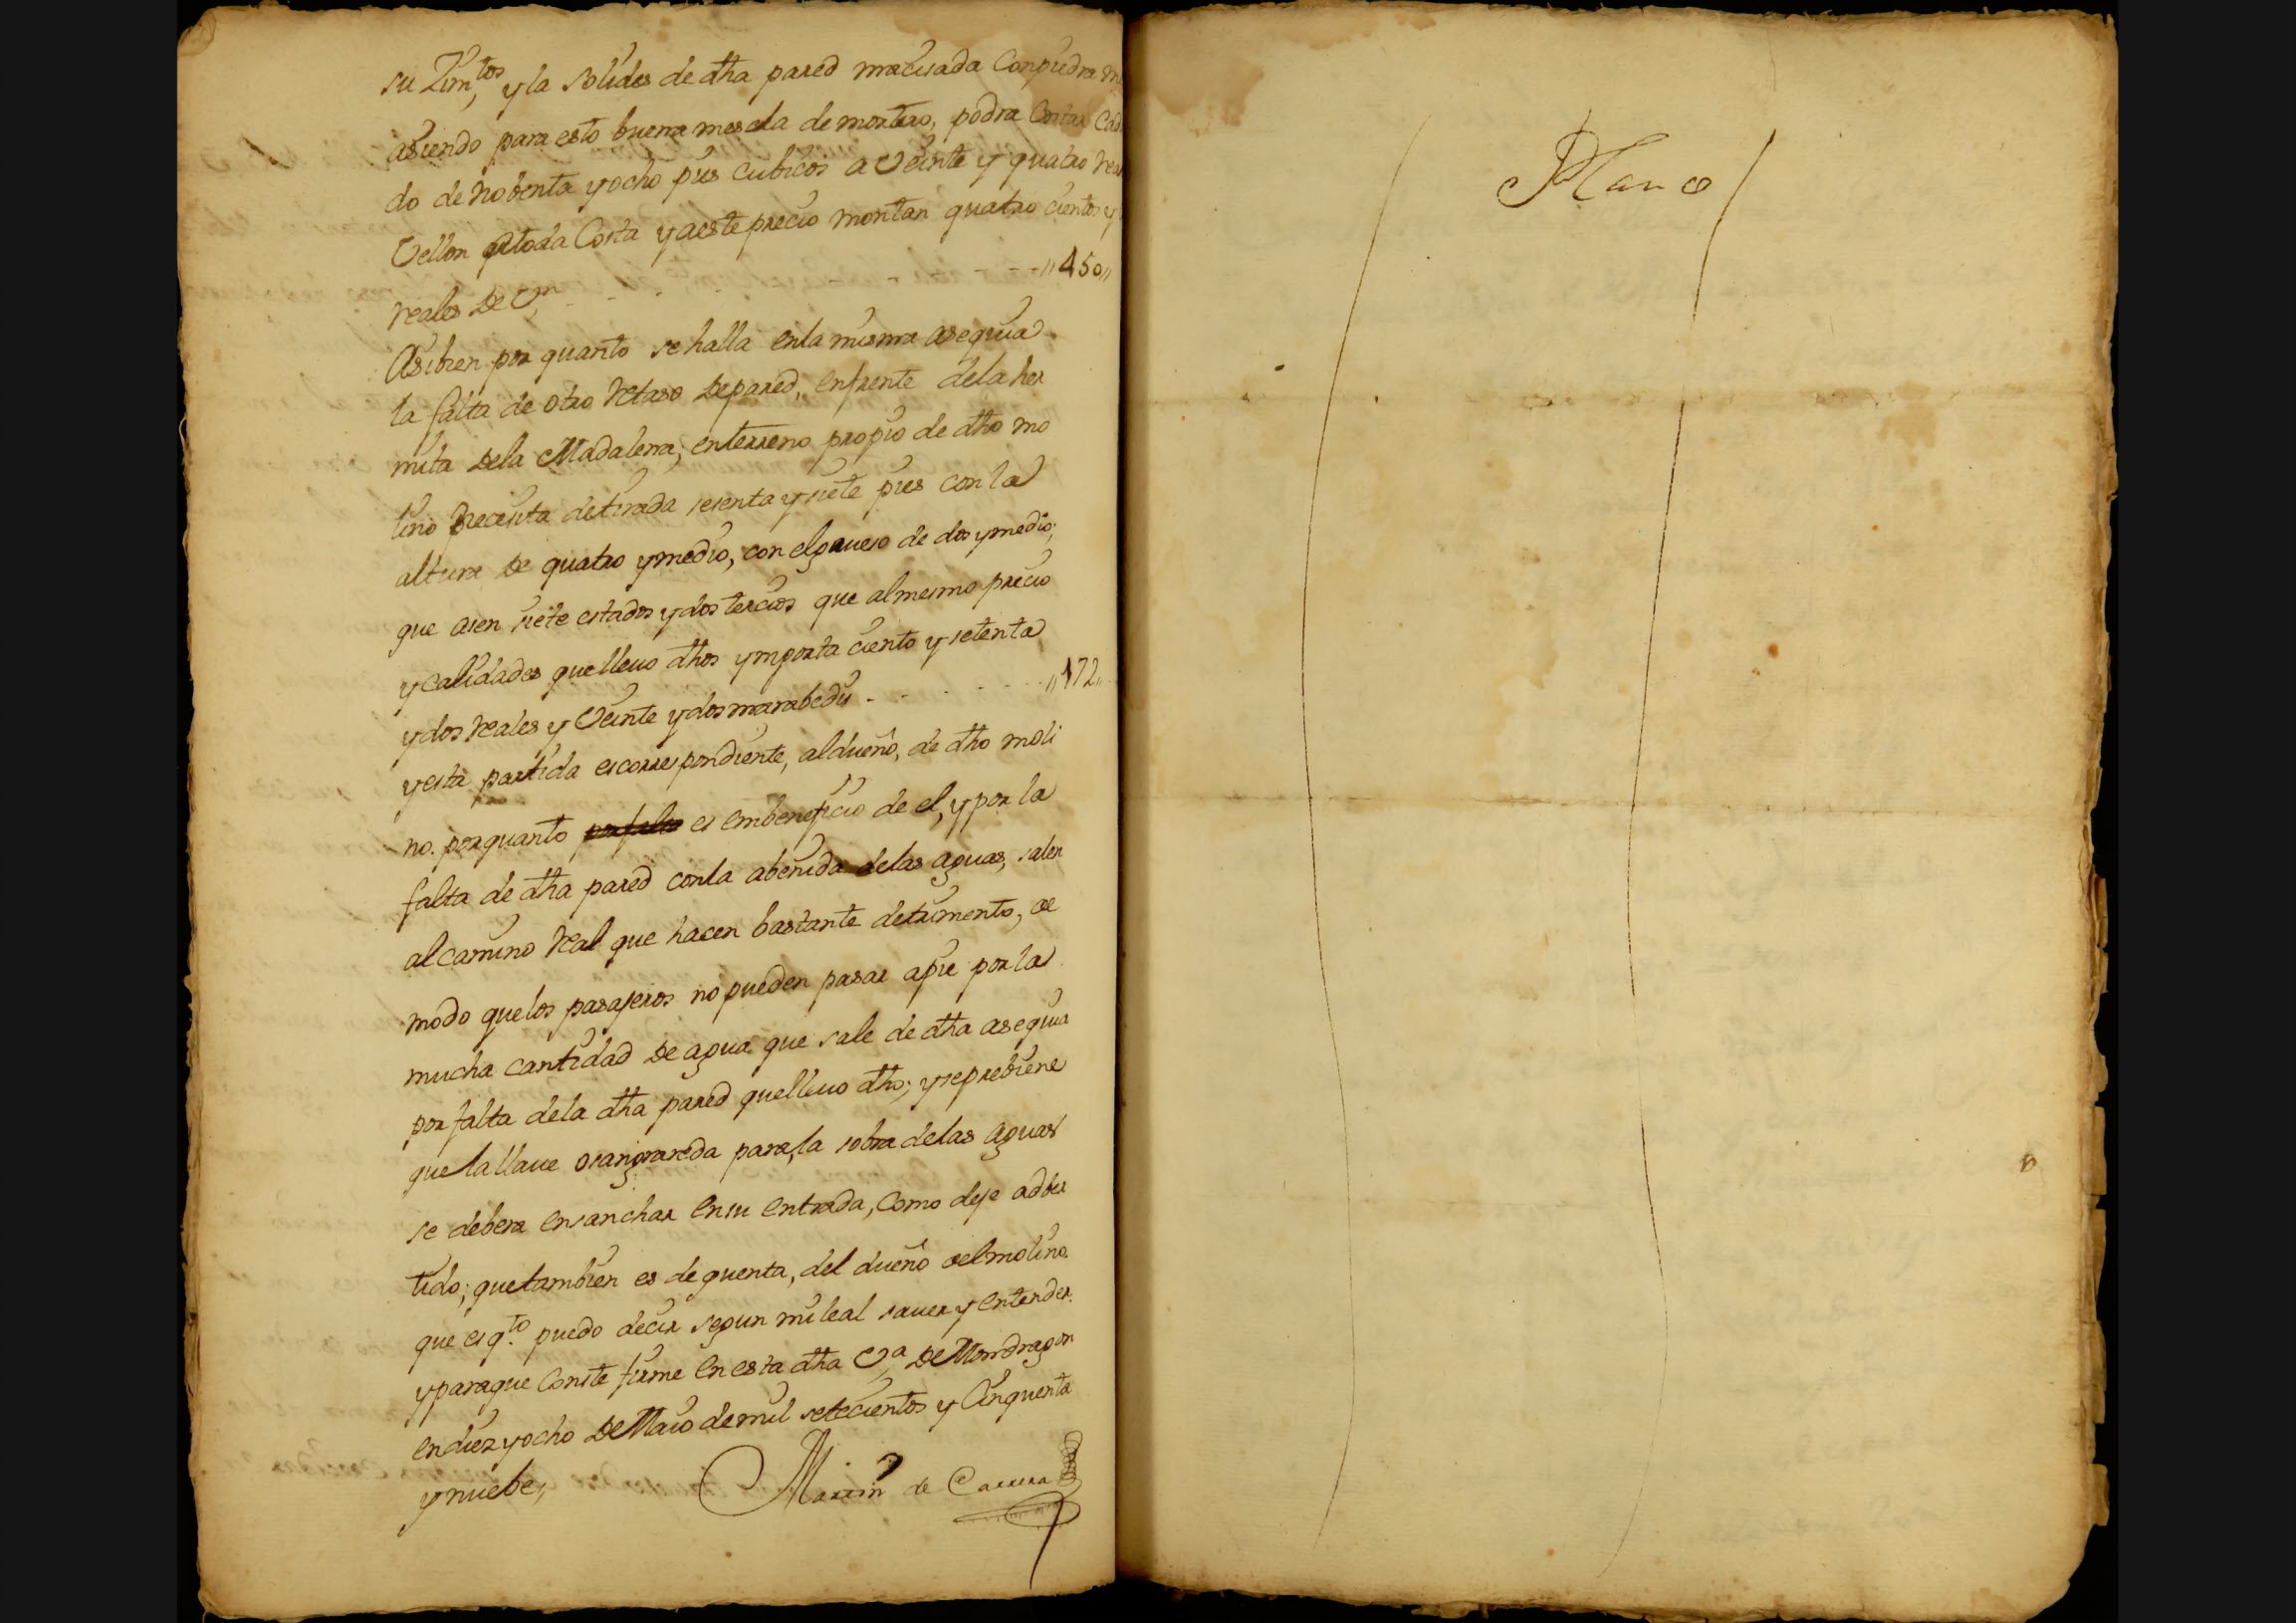 su Zim,tos y la Solides de dha pared macisada Con piedra
asiendo para esto buena mescla de mortero, podra Costar
do de Nobenta y ocho pies cubicos a Veinte y quatro
Vellon toda Costa y a este precio montan quatro cientos y
reales De Vn, - - - - - - „450„
Asibien por quanto se halla en la misma asequia
la falta de otro retaso De pared, enfrente de la her
mita De la Madalena; en terreno propio de dho mo
lino Necesita de tirada sesenta y siete pies con la
altura De quatro y medio, con el grueso de dos y medio;
que asen siete estados y dos tercios que al mesmo precio
y calidades que lleuo dhos ymporta ciento y setenta
y dos reales y Veinte y dos marabedis - - - - - - „172„
y esta partida es correspondiente, al dueño, de dho moli
no. por quanto es em beneficio de el, y por la
falta de dha pared con la abenida de las aguas, salen
al camino real que hacen bastante detrimento, de
modo que los pasajeros no pueden pasar a pie por la
mucha cantidad De agua que sale de dha asequia
por falta de la dha pared que lleuo dho; y se prebiene
que la llaue o sangrareda para la sobra de las aguas
se debera ensanchar en su entrada, Como deje adber
tido; que tambien es de quenta, del dueño del molino.
que es q.to puedo decir segun mi leal sauer y entender.
y para que Conste firme en esta dha Va, De Mondragon
en diez y ocho De Maio de mil setecientos y Cinquenta
y nuebe,
Martin de Carrera
Planco